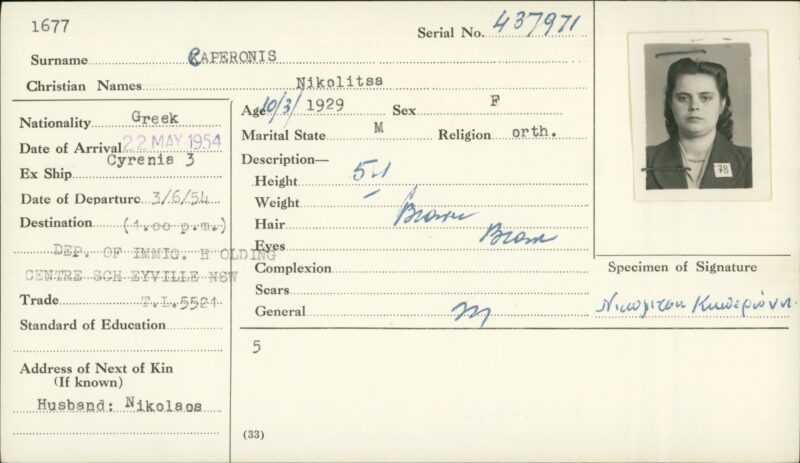 1677
Serial No. 437971
Surname CAPERONIS
Christian Names Nikolitsa
Age 10/3/1929 Sex F
Marital State M Religion orth.
Description—
Height 5-1
Weight -
Hair Brown
Eyes Brown
Complexion
Scars
General M
5
(33)
Nationality Greek
Date of Arrival 22 MAY 1954
Ex Ship Cyrenia 3
Date of Departure 3/6/54
Destination (1.00 p.m.)
DEP. OF IMMIG. H OLDING
CENTRE SCH EYVILLE NSW
Trade T.L.5521
Standard of Education
Address of Next of Kin
(If known)
Husband: Nikolaos
78
Specimen of Signature